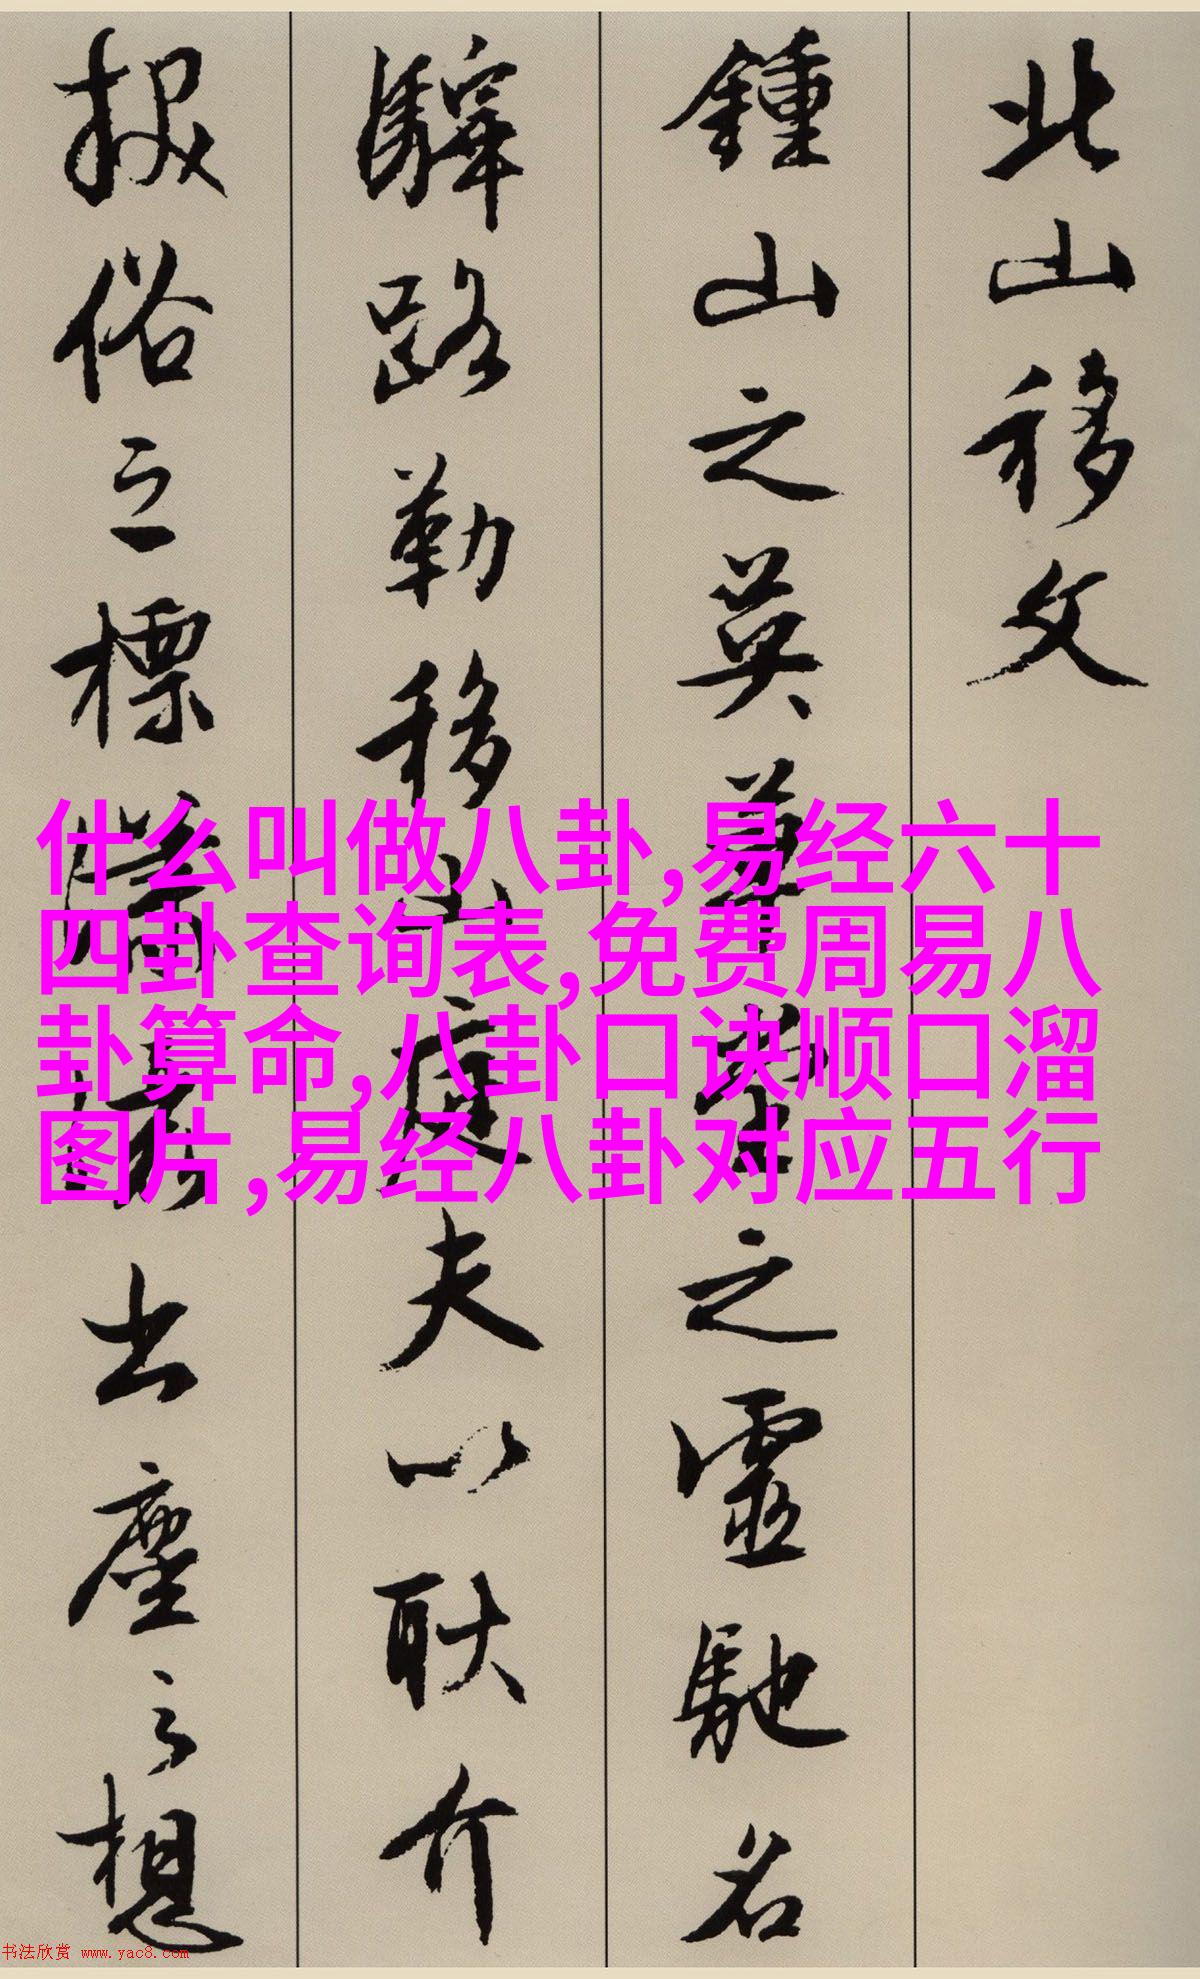 北山移文
鍾山之英草堂之靈馳名
驛路勒移山庭夫以耿介
拔俗之標出塵之想
什么叫做八卦,易经六十
四卦查询表,免费周易八
卦算命,八卦口诀顺口溜
图片,易经八卦对应五行
书法欣赏 www.yac8.com